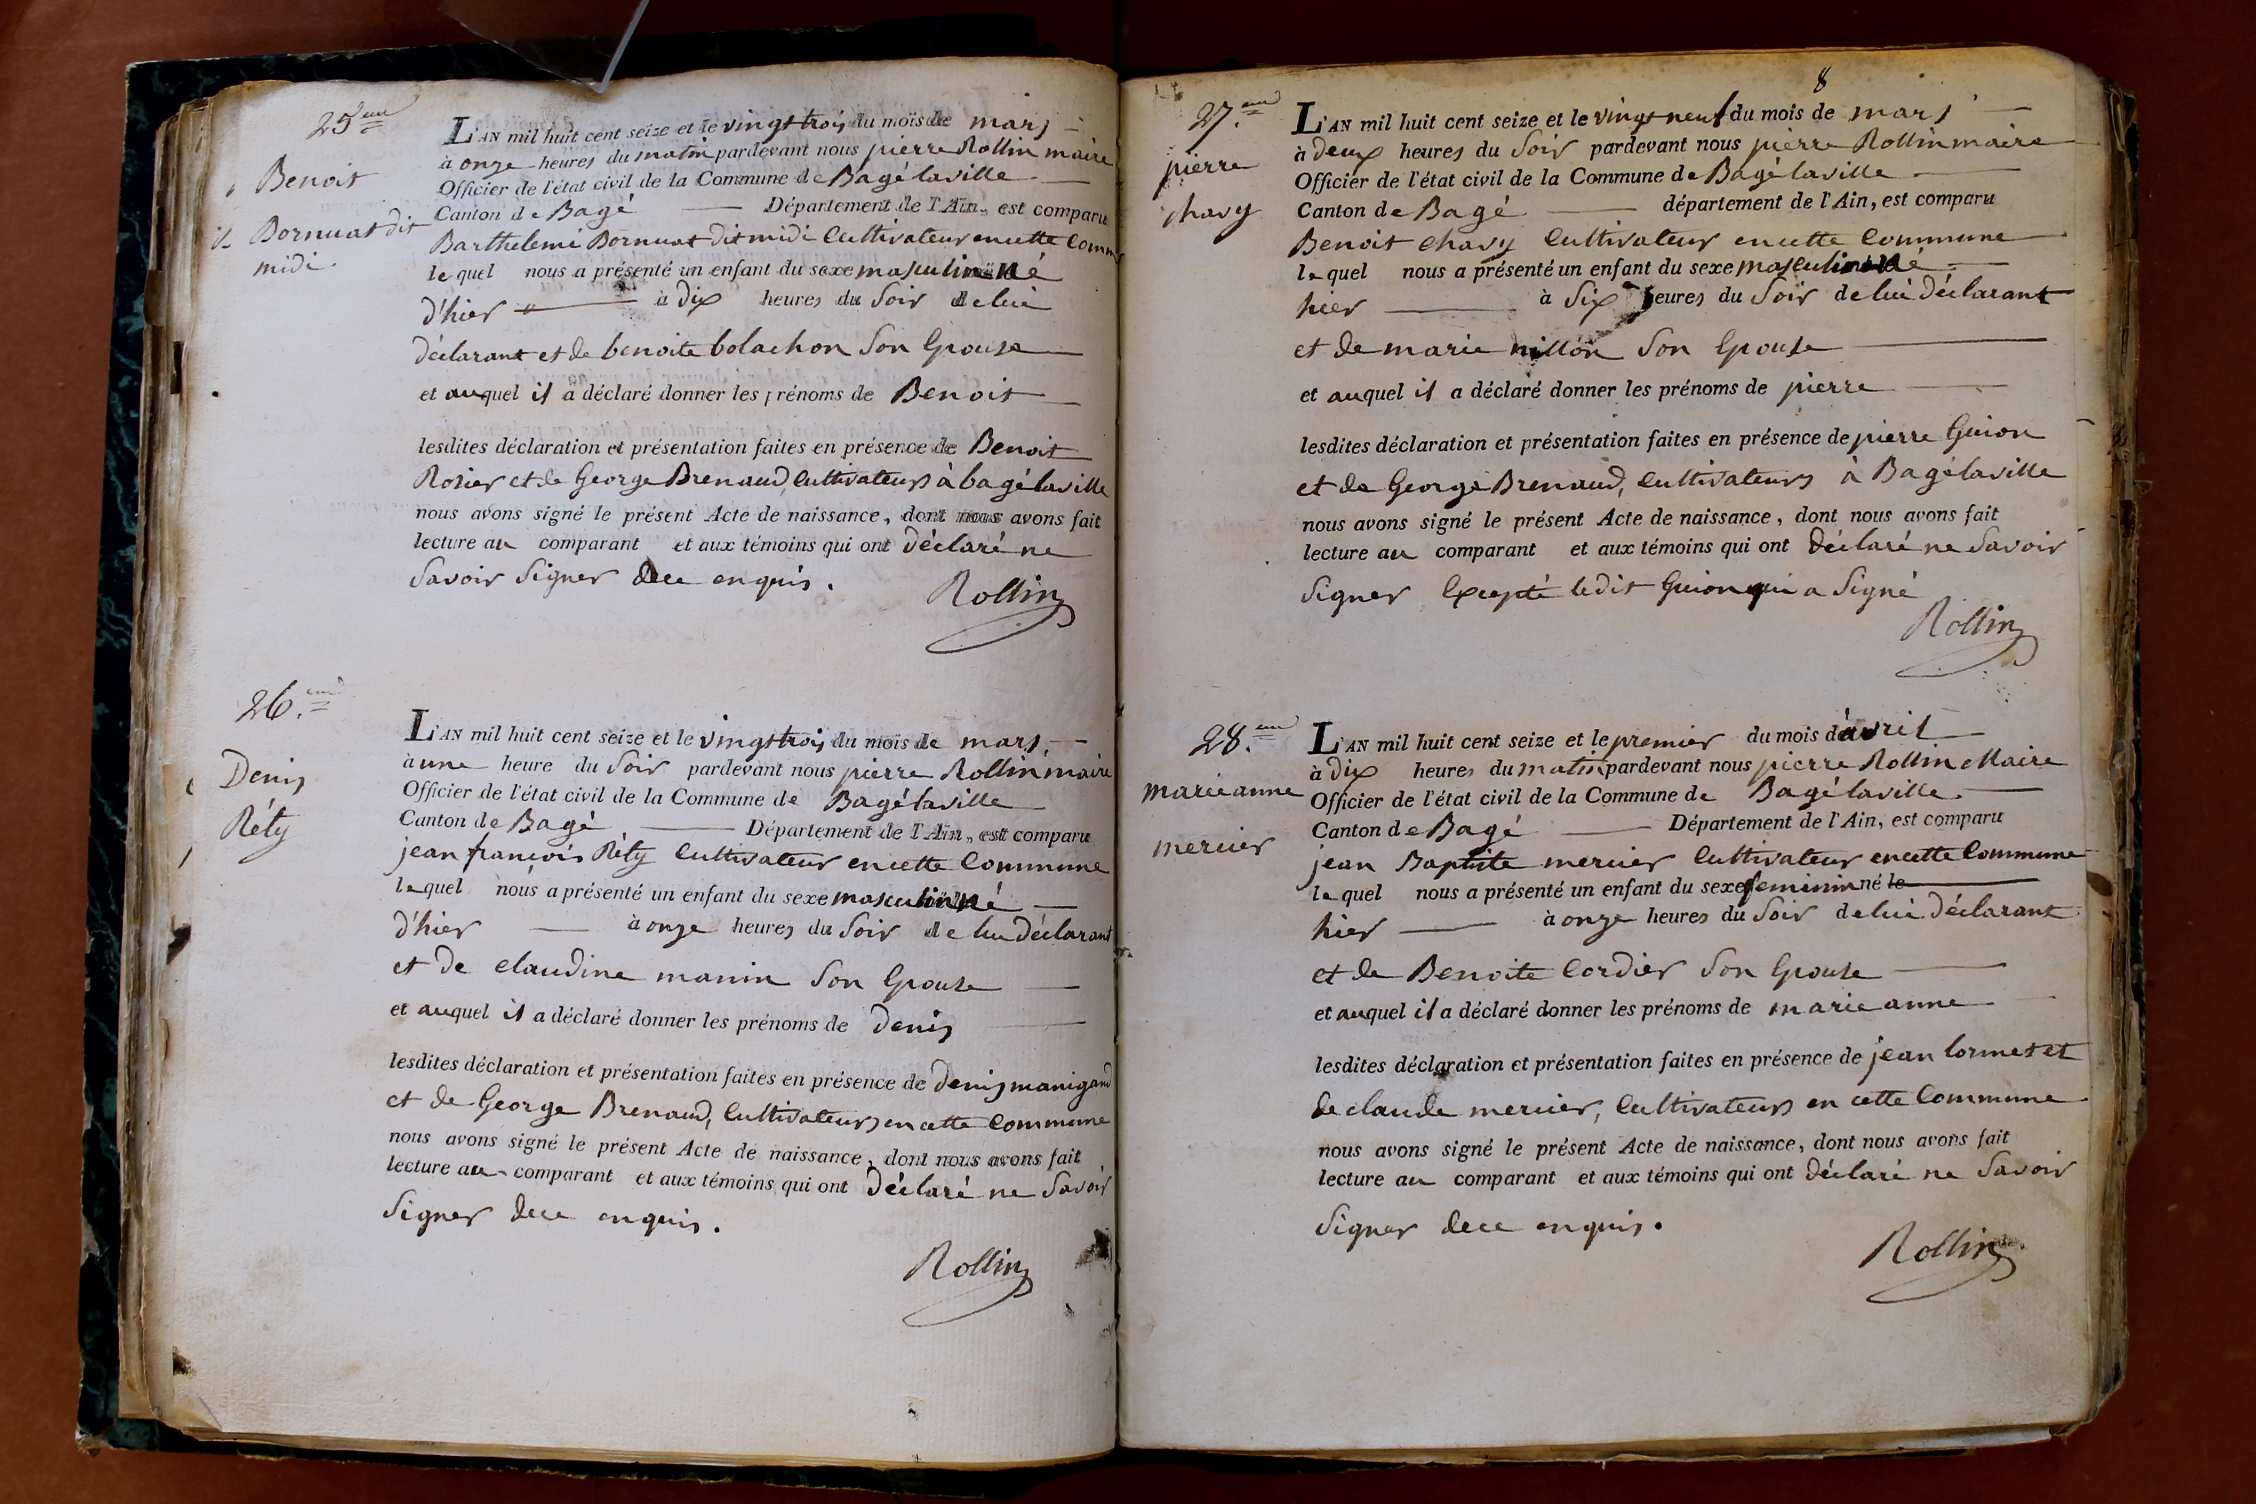 25.eme
Benoit
Bornuat dit
midi
L'AN mil huit cent seize et le vingt trois du mois de mars
à onze heures du matin pardevant nous pierre Rollin maire
Officier de l'état civil de la Commune de Bagé laville
Canton de Bagé Département de l'Ain, est comparu
Barthelemi Bornuat dit midi Cultivateur en cette Comm
lequel nous a présenté un enfant du sexe masculin né
d'hier à dix heures du Soir de lui
déclarant et de benoite bolachon Son Epouse
et auquel il a déclaré donner les prénoms de Benoit
lesdites déclaration et présentation faites en présence de Benoit
Rozier et de George Brenaud, Cultivateurs à bagé laville
nous avons signé le présent Acte de naissance, dont nous avons fait
lecture au comparant et aux témoins qui ont déclaré ne
Savoir Signer dece enquis.
Rollin
26.eme
Denis
Réty
L'AN mil huit cent seize et le vingt trois du mois de mars
à une heure du Soir pardevant nous pierre Rollin maire
Officier de l'état civil de la Commune de Bagé laville
Canton de Bagé Département de l'Ain, est comparu
jean françois Réty Cultivateur en cette Commune
lequel nous a présenté un enfant du sexe masculin né
d'hier à onze heures du Soir de lui déclarant
et de claudine manin Son Epouse
et auquel il a déclaré donner les prénoms de denis
lesdites déclaration et présentation faites en présence de denis manigand
et de George Brenaud, Cultivateurs en cette Commune
nous avons signé le présent Acte de naissance, dont nous avons fait
lecture au comparant et aux témoins qui ont déclaré ne Savoir
Signer dece enquis.
Rollin
8
27.eme
pierre
chavy
L'AN mil huit cent seize et le vingt neuf du mois de mars
à deux heures du Soir pardevant nous pierre Rollin maire
Officier de l'état civil de la Commune de Bagé laville
Canton de Bagé département de l'Ain, est comparu
Benoit chavy Cultivateur en cette Commune
lequel nous a présenté un enfant du sexe masculin né
hier à Six heures du Soir de lui déclarant
et de marie nillon Son Epouse
et auquel il a déclaré donner les prénoms de pierre
lesdites déclaration et présentation faites en présence de pierre Guion
et de George Brenaud, Cultivateurs à Bagé laville
nous avons signé le présent Acte de naissance, dont nous avons fait
lecture au comparant et aux témoins qui ont déclaré ne Savoir
Signer Excepté ledit Guion qui a Signé
Rollin
28.eme
marie anne
mercier
L'AN mil huit cent seize et le premier du mois d'avril
à dix heures du matin pardevant nous pierre Rollin Maire
Officier de l'état civil de la Commune de Bagé laville
Canton de Bagé Département de l'Ain, est comparu
jean Baptiste mercier Cultivateur en cette Commune
lequel nous a présenté un enfant du sexe feminin né le
hier à onze heures du Soir de lui déclarant
et de Benoite Cordier Son Epouse
et auquel il a déclaré donner les prénoms de marie anne
lesdites déclaration et présentation faites en présence de jean Cormet et
de claude mercier, Cultivateurs en cette Commune
nous avons signé le présent Acte de naissance, dont nous avons fait
lecture au comparant et aux témoins qui ont déclaré ne Savoir
Signer dece enquis.
Rollin